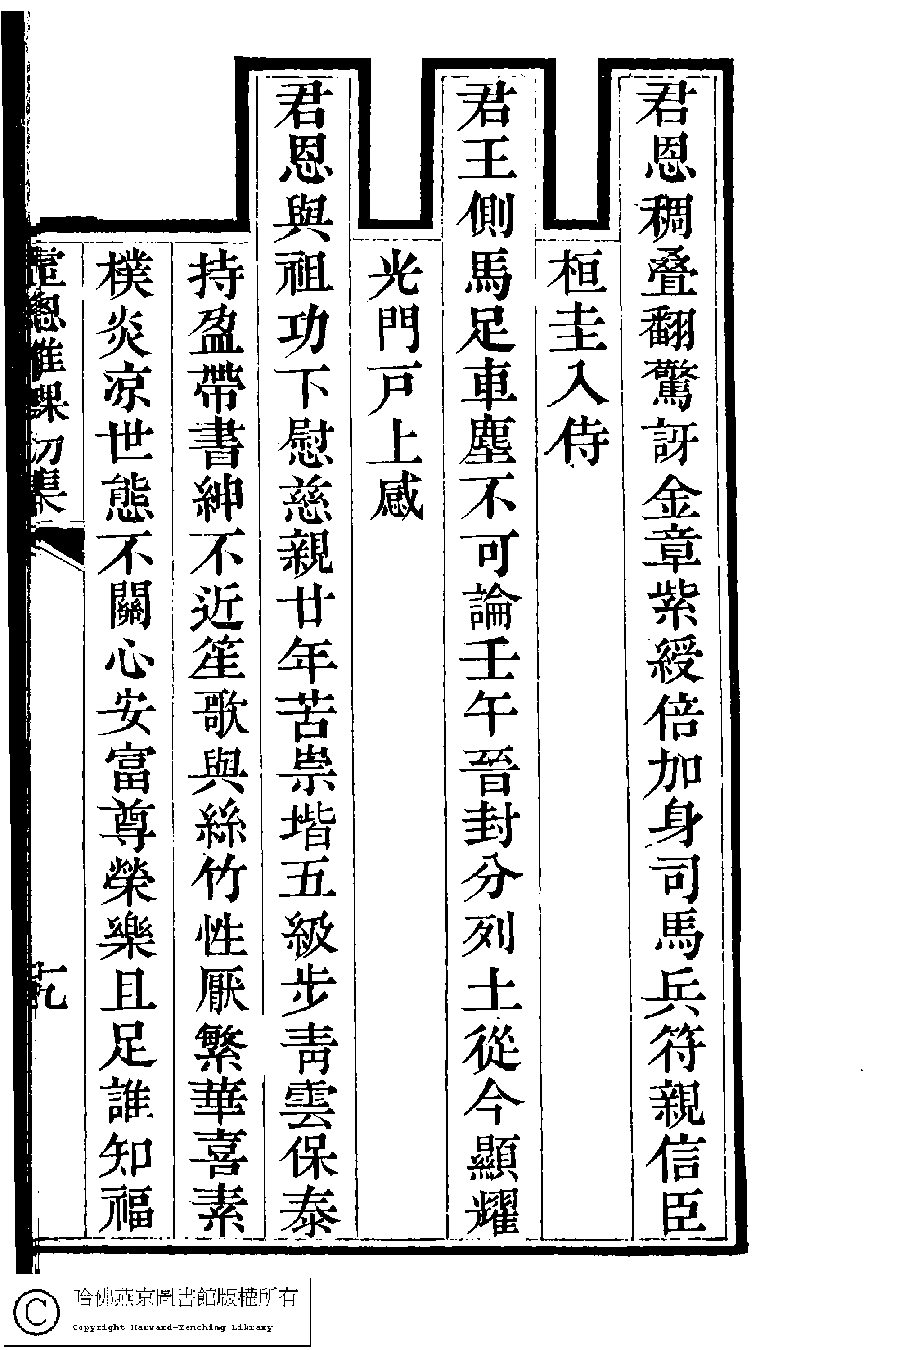 君恩稠叠翻驚訝金章紫綬倍加身司馬兵符親信臣
桓圭入侍
君王側馬足車塵不可論壬午晉封分列土從今顯耀
光門戶上感
君恩與祖功下慰慈親廿年苦崇堦五級步靑雲保泰
持盈帶書紳不近笙歌與絲竹性厭繁華喜素
樸炎凉世態不關心安富尊榮樂且足誰知福
課初集
九
哈佛燕京圖書館版權所有
Copyright Harvard-Yenching Library